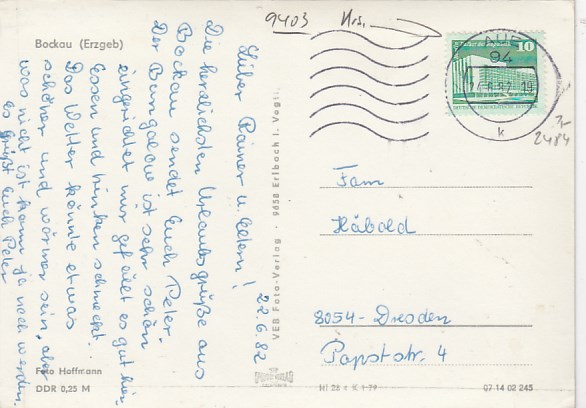 9403 Hrs.
Bockau (Erzgeb)
Lieber Rainer u. Eltern!
Die herzlichsten Urlaubsgrüße aus
Bockau sendet Euch Peter.
Der Bungalow ist sehr schön
eingerichtet mir gefällt es gut hier
Essen und trinken schmeckt.
Das Wetter könnte etwas
schöner und wärmer sein, aber
was nicht ist kann ja noch werden.
Es grüßt Euch Peter
22.6.82
Foto Hoffmann
DDR 0,25 M
VEB Foto-Verlag · 9658 Erlbach i. Vogtl.
AUE
94
10
k
2484
Fam
Häbold
8054-Dresden
Papststr. 4
07 14 02 245